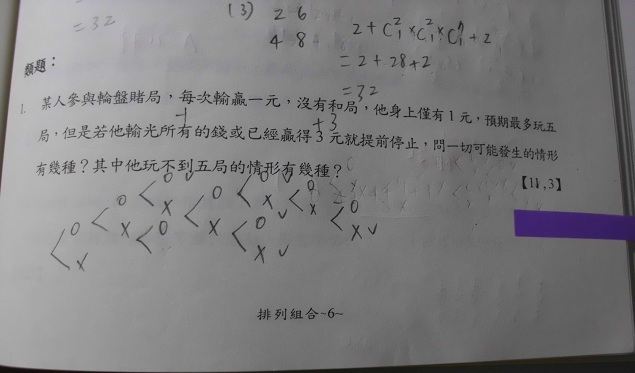 = 32
(3) 2 6
4 8
2 + C₁² × C₁² × C₁⁷ + 2
= 2 + 28 + 2
= 32
類題：
1. 某人參與輪盤賭局，每次輸贏一元，沒有和局，他身上僅有1元，預期最多玩五
-1 +3
局，但是若他輸光所有的錢或已經贏得3元就提前停止，問一切可能發生的情形
有幾種？其中他玩不到五局的情形有幾種？
【11,3】
O X O X O X O X O X O X O X O X O X
排列組合~6~